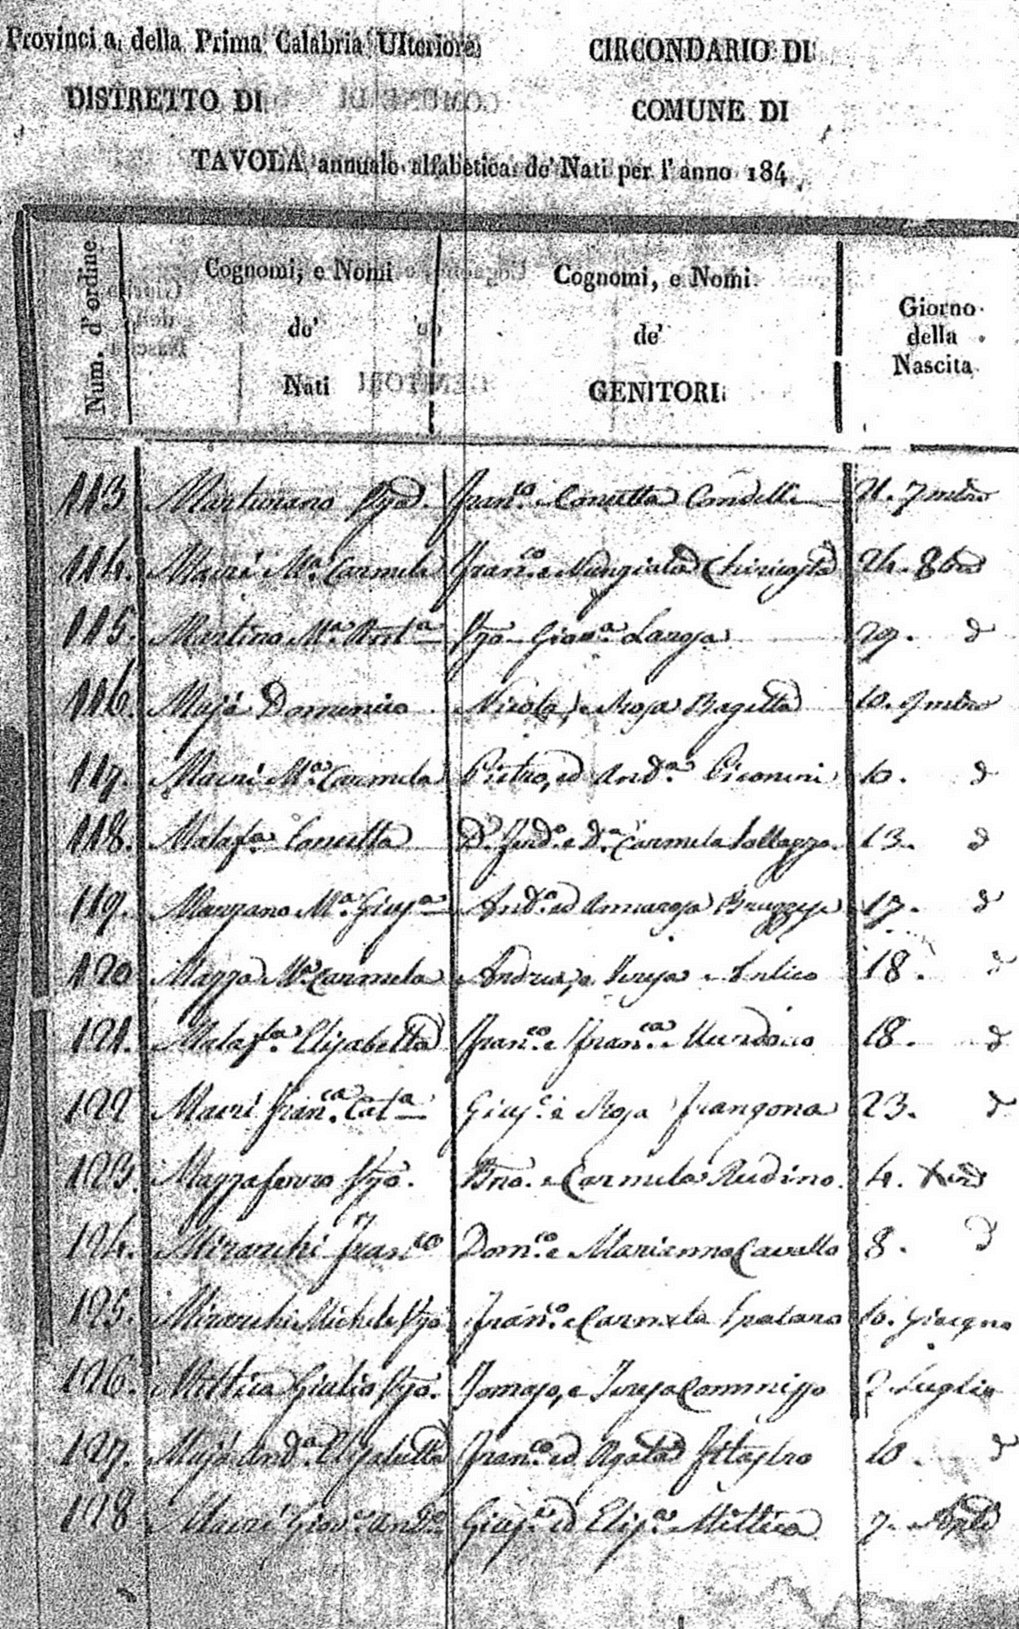 Provincia della Prima Calabria Ulteriore
CIRCONDARIO DI
DISTRETTO DI
COMUNE DI
TAVOLA annuale alfabetica de' Nati per l'anno 184
Num. d'ordine
Cognomi, e Nomi
de'
Nati
Cognomi, e Nomi
de'
GENITORI
Giorno
della
Nascita
113. Marturano Franco. e Concetta 21. 7mbre
114. Macrì Ma. Carmela Franco. e Nunziata Chiricosta 24. 8bre
115. Martino Ma. Giova. Larosa 29. d
116. Majá Domenico Nicola, e Rosa Bagettà 10. 9mbre
117. Macrì Ma. Carmela Pietro, ed Anda. Piconeri 10. d
118. Malafa. Concetta Dn. Ferdo. e Da. Carmela Sollazzo. 13. d
119. Manzano Ma. Giusa. Ando. ed Annarosa Bruzzese 17. d
120 Mazza Ma. Carmela Andrea, e Teresa Antico 18. d
121. Malafa. Elisabetta Franco. e Franca. Murdoco 18. d
122 Macrì Franca. Cata. Giuse. e Rosa Frangona 23. d
123. Mazzaferro Bno. e Carmela Rudino. 4. Xbre
124. Miranchi Franco Domco. e Marianna Cavallo 8. d
125. Miranchi Michele Franco. e Carmela Spatano 10. Giugno
126. Mittica Giulio Tomaso, e Teresa Commisso 2 Luglio
127. Majá Anda. Elisabetta Franco. ed Agata Filastro 10. d
128 Macrì Giova. Anda. Giuse. ed Elisa. Mittica 7.